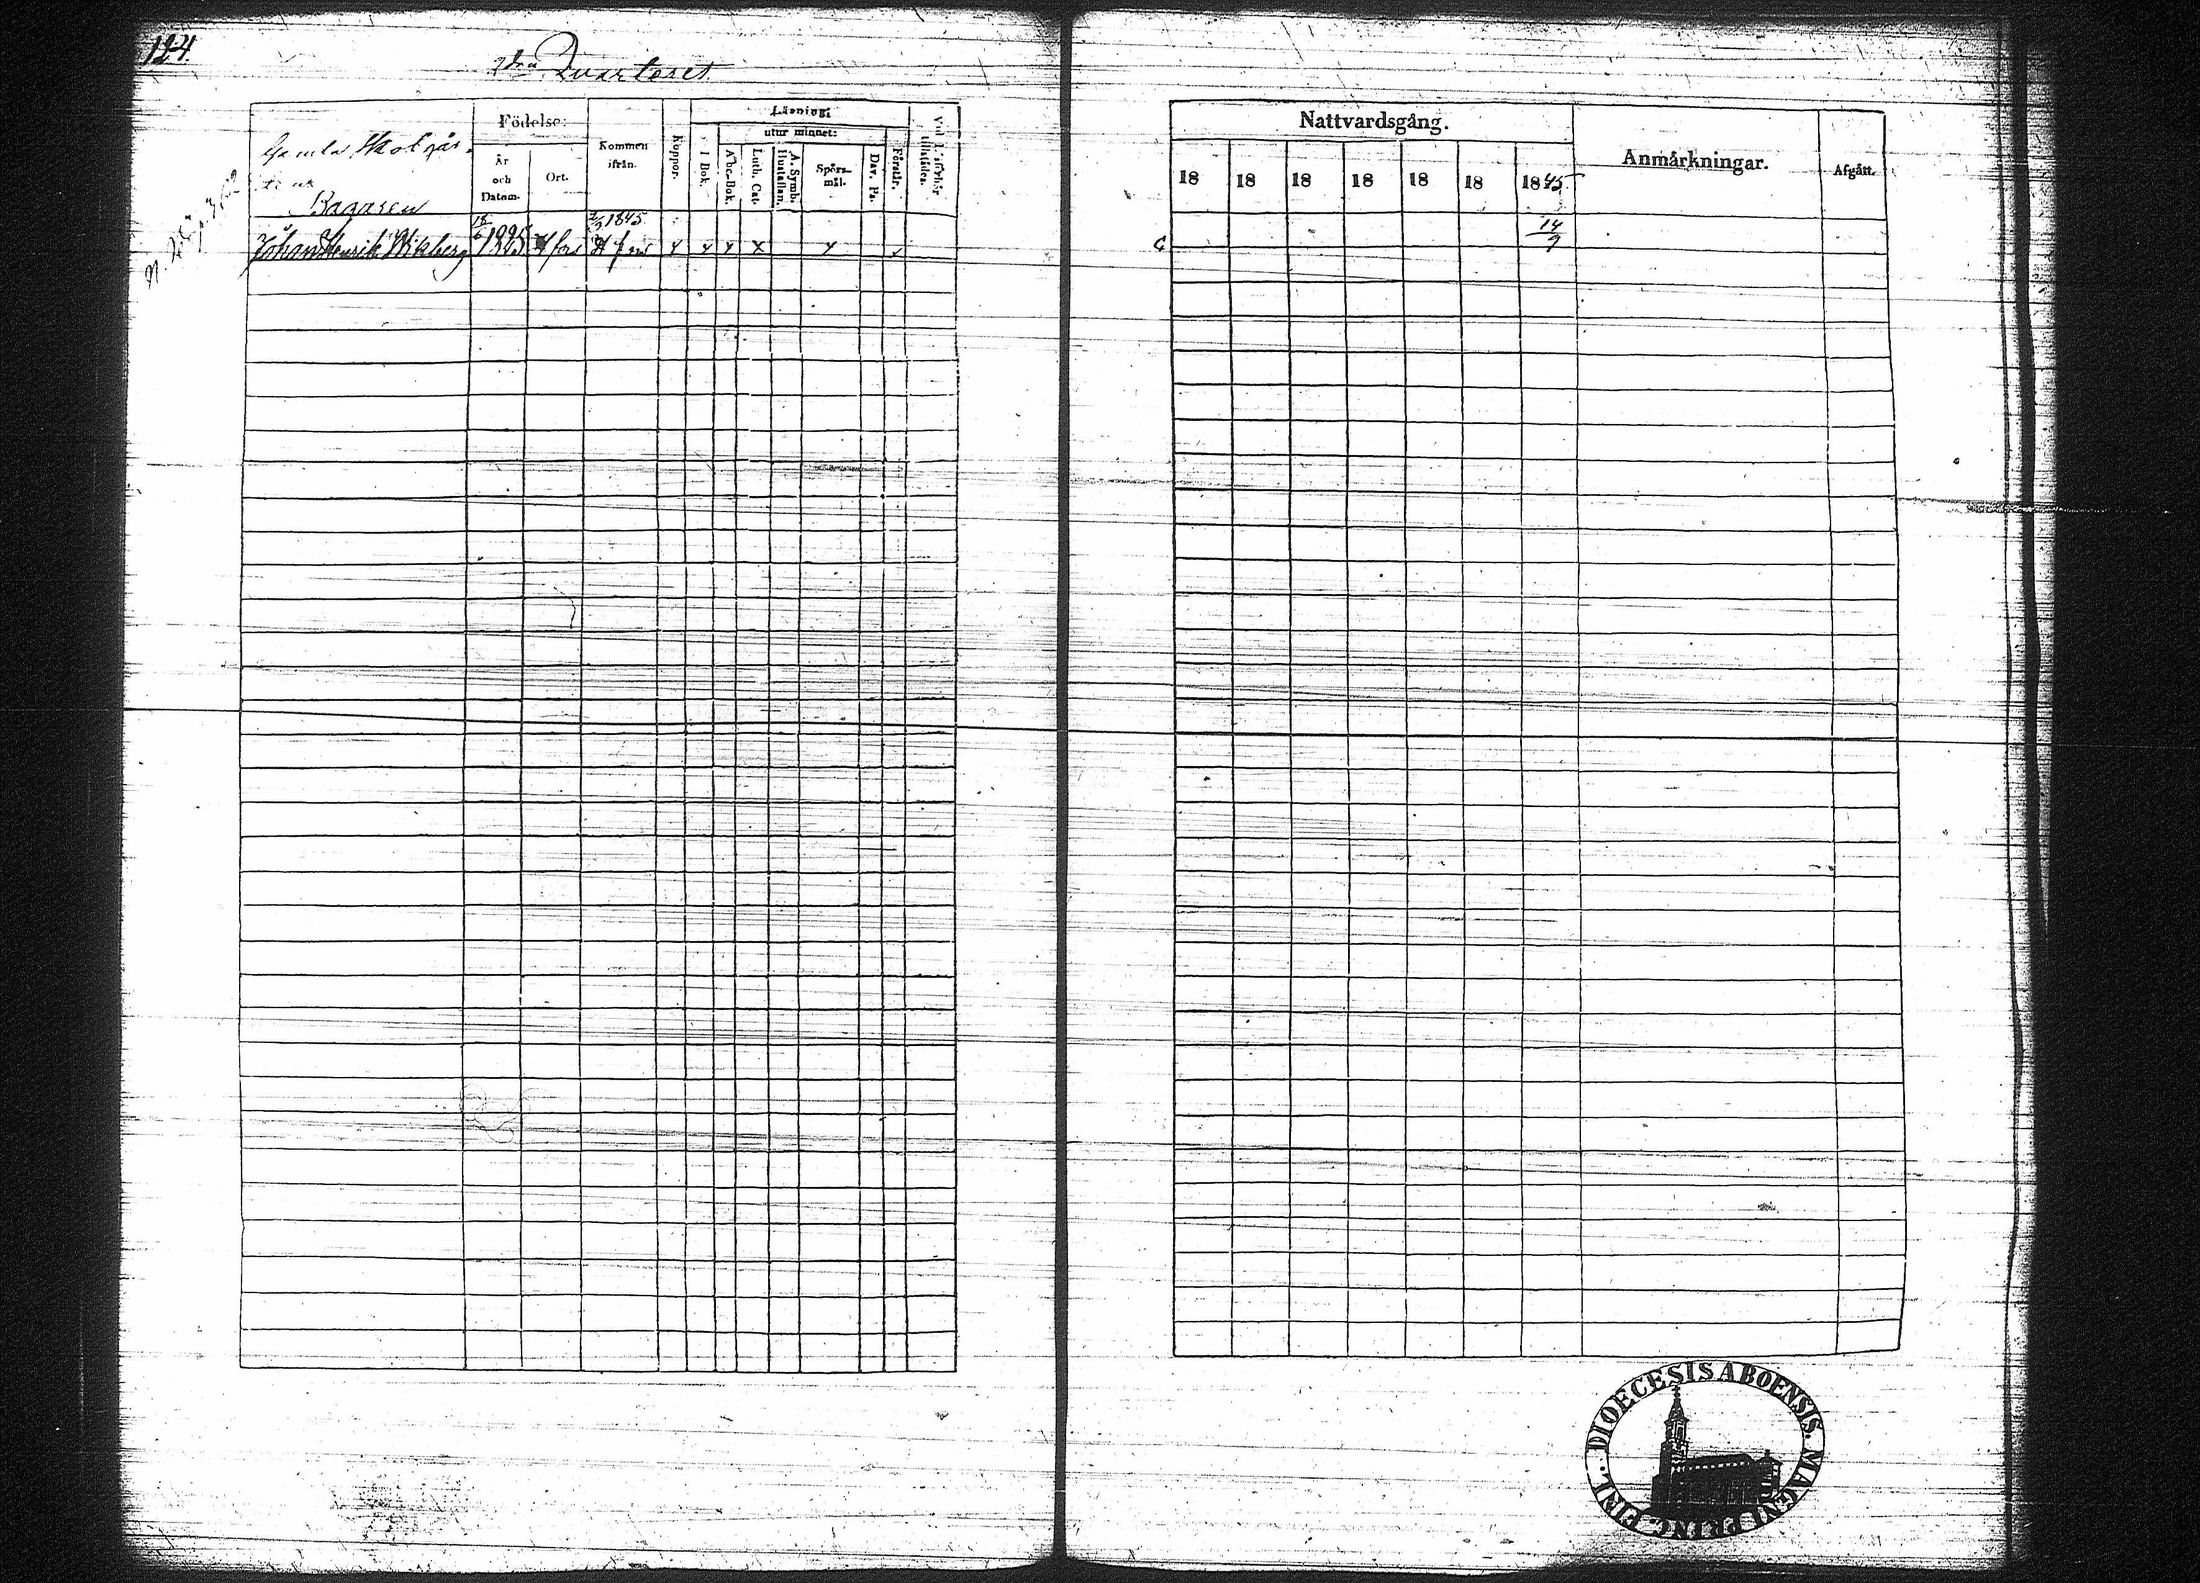 124.
2dra Quarteret
Gamla Skolgår-
den
Bagaren
Födelse:
År och Datum.
Ort.
Kommen ifrån.
Koppor.
Läsning:
I Bok.
utur minnet:
Abc-Bok.
Luth. Cat.
A. Symb. Hustaflan.
Spörs-mål.
Dav. Ps.
Förstår.
Vid Läsförhör tillstädes.
Johan Henrik Wikberg 18/6 1825 Hfors 2/9 1845 Hfors x x x x x
Nattvardsgång.
18 18 18 18 18 18 1845.
Anmärkningar.
Afgått.
14/9
DIOECESIS ABOENSIS. MAGNI PRINC. FINL.